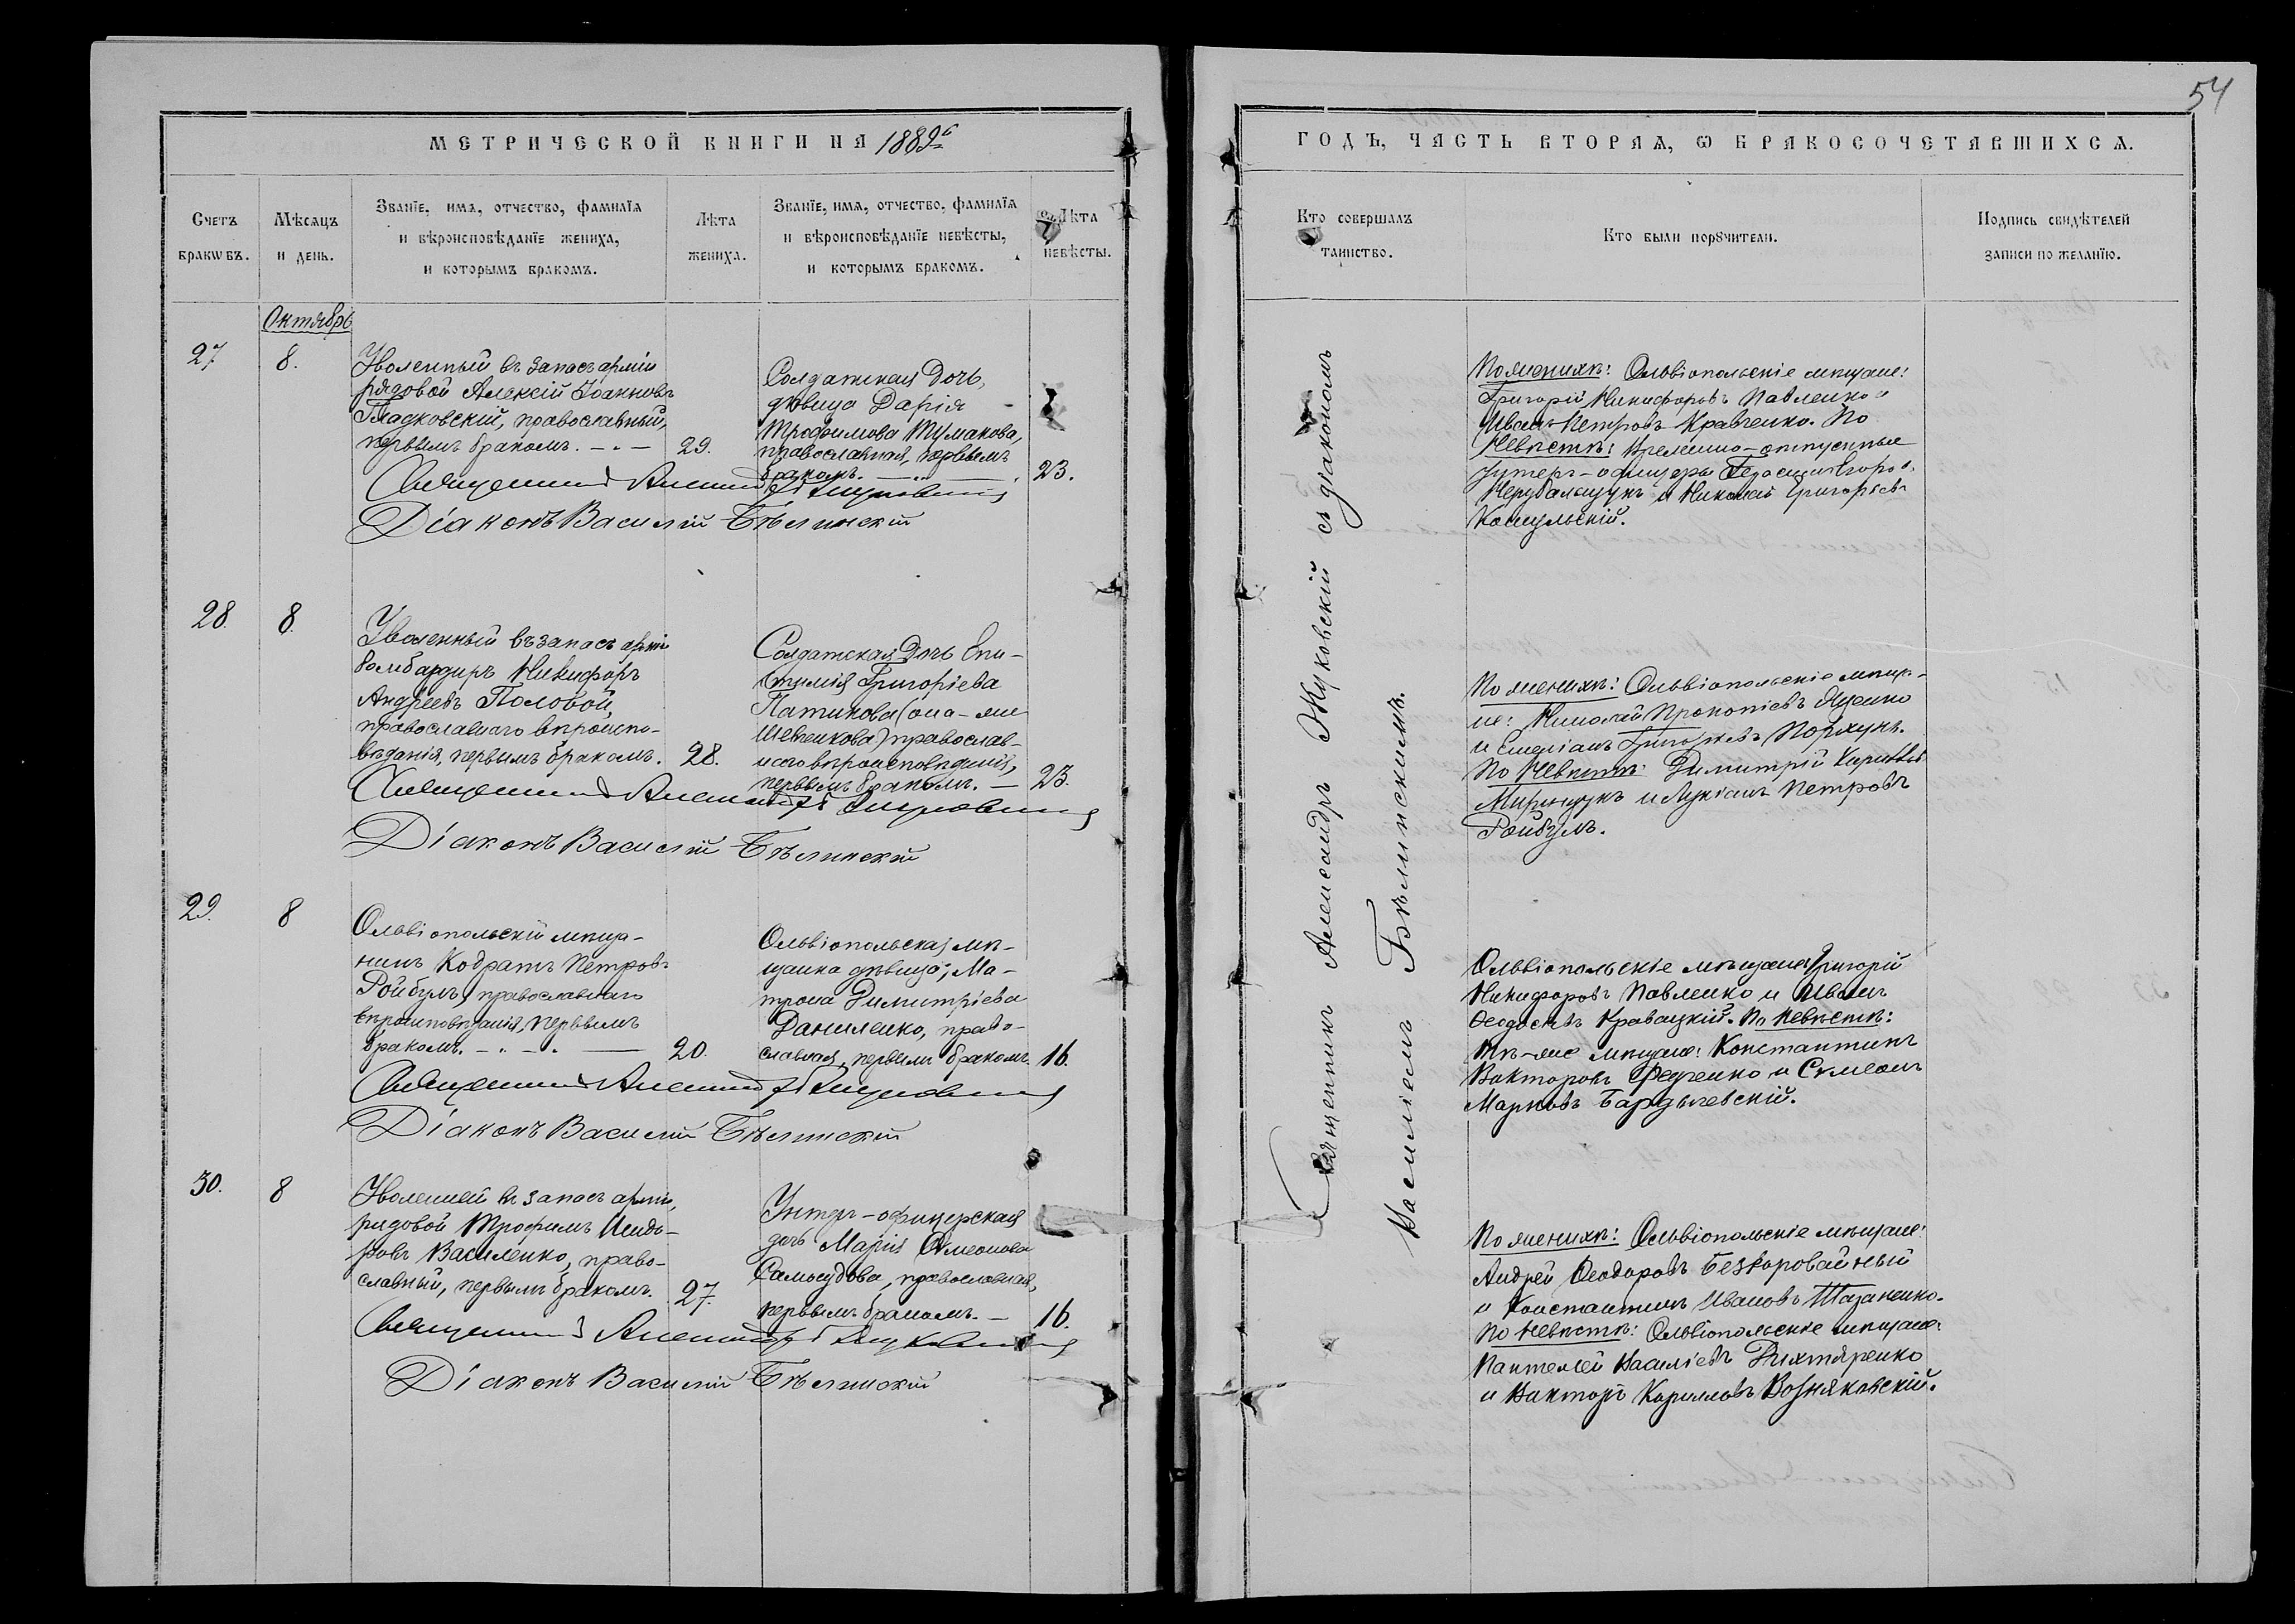 54
МЕТРИЧЕСКОЙ КНИГИ НА 1889й
Счетъ браковъ.
Мѣсяцъ и день.
Званіе, имя, отчество, фамилія
и вѣроисповѣданіе жениха,
и которымъ бракомъ.
Лѣта жениха.
Званіе, имя, отчество, фамилія
и вѣроисповѣданіе невѣсты,
и которымъ бракомъ.
Лѣта невѣсты.
Октябрь
27
8.
Уволенный въ запасъ арміи
рядовой Алексій Іоанновъ
Гладковскій, православный,
первымъ бракомъ.
29.
Солдатская дочь,
дѣвица Дарія
Трофимова Тумакова,
православная, первымъ
бракомъ.
23.
Священникъ Александръ Жуковскій
Діаконъ Василій Бѣлинскій
28.
8.
Уволенный въ запасъ арміи
бомбардиръ Никифоръ
Андреевъ Половой,
православнаго вѣроиспо-
вѣданія, первымъ бракомъ.
28.
Солдатская дочь Епи-
стимія Григоріева
Патикова (она-же
Шевченкова) православ-
наго вѣроисповѣданія,
первымъ бракомъ.
23.
Священникъ Александръ Жуковскій
Діаконъ Василій Бѣлинскій
29.
8
Ольвіопольскій мѣща-
нинъ Кодратъ Петровъ
Ройбулъ, православнаго
вѣроисповѣданія, первымъ
бракомъ.
20.
Ольвіопольская мѣ-
щанка дѣвица, Ма-
трона Димитріева
Даниленко, право-
славная, первымъ бракомъ.
16.
Священникъ Александръ Жуковскій
Діаконъ Василій Бѣлинскій
30.
8
Уволенный въ запасъ арміи,
рядовой Трофимъ Исидо-
ровъ Василенко, право-
славный, первымъ бракомъ.
27.
Унтеръ-офицерская
дочь Марія Симеонова
Самосудова, православная,
первымъ бракомъ.
16.
Священникъ Александръ Жуковскій
Діаконъ Василій Бѣлинскій
ГОДЪ, ЧАСТЬ ВТОРАЯ, Ѡ БРАКОСОЧЕТАВШИХСЯ.
Кто совершалъ таинство.
Кто были поручители.
Подпись свидѣтелей
записи по желанію.
Священникъ Александръ Жуковскій съ діакономъ
Василіемъ Бѣлинскимъ.
По женихѣ: Ольвіопольскіе мѣщане:
Григорій Никифоровъ Павленко и
Иванъ Петровъ Кравченко. По
Невѣстѣ: временно-отпускные
унтеръ-офицеры
и Николай Григорьевъ
По женихѣ: Ольвіопольскіе мѣща-
не: Николай Прокопіевъ Яценко
и Григорьевъ
По Невѣстѣ: Димитрій
и Лукіанъ Петровъ
Ройбулъ.
Ольвіопольскіе мѣщане Григорій
Никифоровъ Павленко и Иванъ
Ѳеодосіевъ Кравацкій. По Невѣстѣ:
тѣ-же мѣщане: Константинъ
Викторовъ Федченко и Симеонъ
Марковъ Бардычевскій.
По женихѣ: Ольвіопольскіе мѣщане:
Андрей Ѳеодоровъ Безкоровайный
и Константинъ Ивановъ
По Невѣстѣ: Ольвіопольскіе мѣщане:
Пантелей Василіевъ Дихтяренко
и Викторъ Кирилловъ Возняковскій.